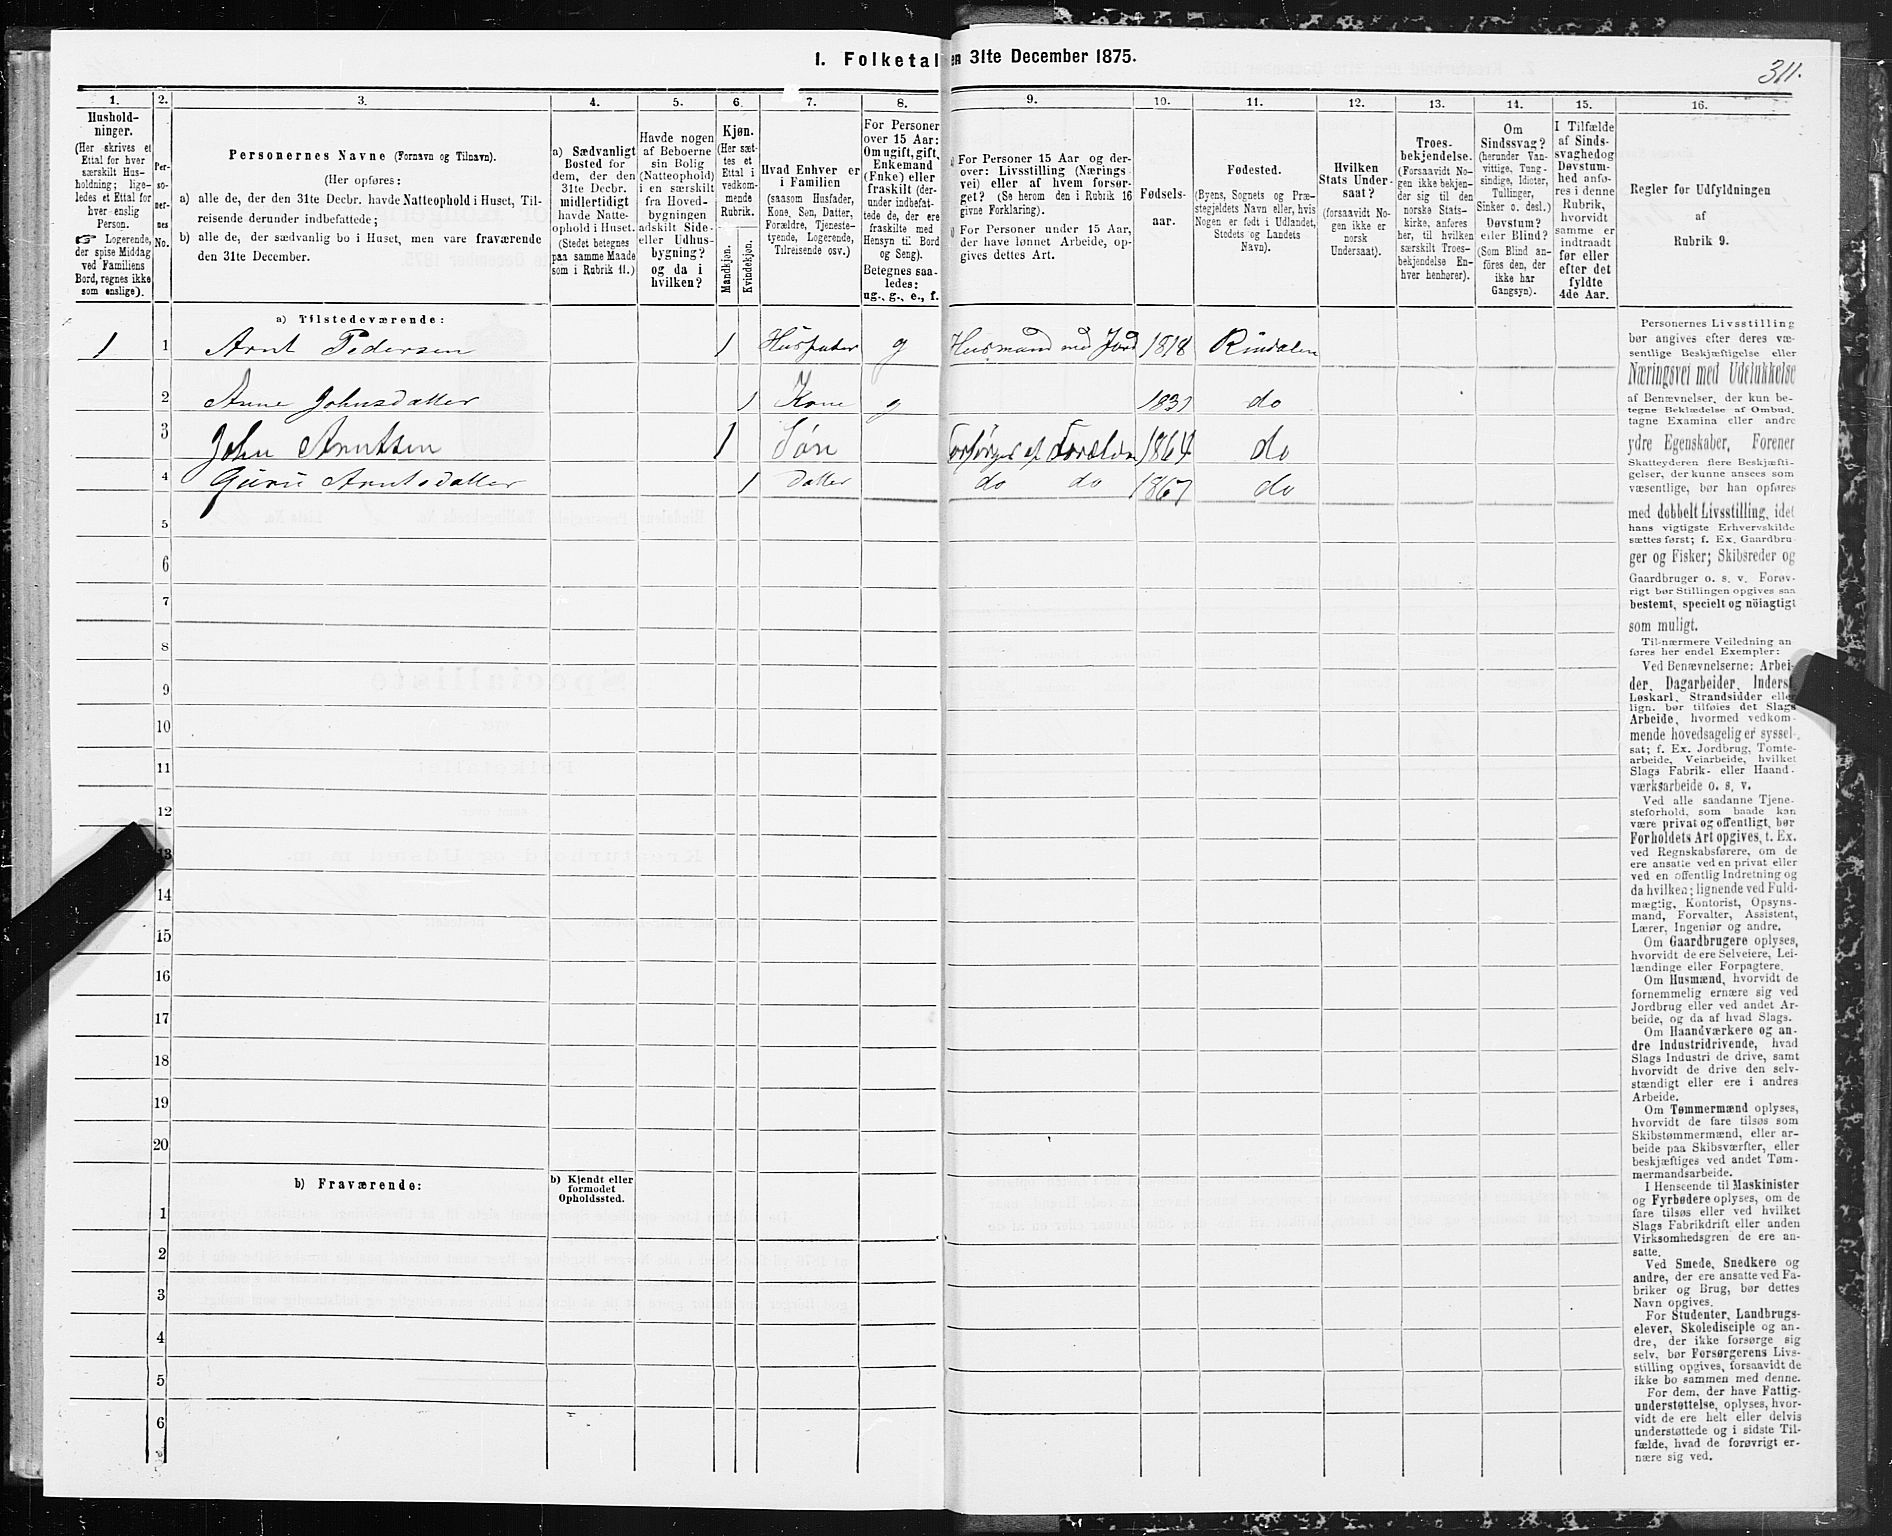 I. Folketal
en 31te December 1875.
311.
1.
2.
3.
4.
5.
6.
7.
8.
9.
10.
11.
12.
13.
14.
15.
16.
Hushold-
ninger.
(Her skrives et
Ettal for hver
særskilt Hus-
holdning; lige-
ledes et Ettal for
hver enslig
Person.
☞ Logerende,
der spise Middag
ved Familiens
Bord, regnes ikke
som enslige).
Per-
so-
ner-
nes
No.
Personernes Navne (Fornavn og Tilnavn).
(Her opføres:
a) alle de, der den 31te Decbr. havde Natteophold i Huset, Til-
reisende derunder indbefattede;
b) alle de, der sædvanlig bo i Huset, men vare fraværende
den 31te December.
a) Sædvanligt
Bosted for
dem, der den
31te Decbr.
midlertidigt
havde Natte-
ophold i Huset.
(Stedet betegnes
paa samme Maade
som i Rubrik 11.)
Havde nogen
af Beboerne
sin Bolig
(Natteophold)
i en særskilt
fra Hoved-
bygningen
adskilt Side-
eller Udhus-
bygning?
og da i
hvilken?
Kjøn.
(Her sæt-
tes et
Ettal i
vedkom-
mende
Rubrik.
Mandkjøn.
Kvindekjøn.
Hvad Enhver er
i Familien
(saasom Husfader,
Kone, Søn, Datter,
Forældre, Tjeneste-
tyende, Logerende,
Tilreisende osv.)
For Personer
over 15 Aar:
Om ugift, gift,
Enkemand
(Enke) eller
fraskilt (der-
under indbefat-
tede de, der ere
fraskilte med
Hensyn til Bord
og Seng).
Betegnes saa-
ledes:
ug., g., e., f.
For Personer 15 Aar og der-
over: Livsstilling (Nærings
vei) eller af hvem forsør-
get? (Se herom den i Rubrik 16
givne Forklaring).
For Personer under 15 Aar,
der have lønnet Arbeide, op-
gives dettes Art.
Fødsels-
aar.
Fødested.
(Byens, Sognets og Præ-
stegjeldets Navn eller, hvis
Nogen er født i Udlandet,
Stedets og Landets
Navn).
Hvilken
Stats Under-
saat?
(forsaavidt No-
gen ikke er
norsk
Undersaat).
Troes-
bekjendelse.
(Forsaavidt No-
gen ikke bekjen-
der sig til den
norske Stats-
kirke, anføres
her, til hvilken
særskilt Troes-
bekjendelse En-
hver henhører).
Om
Sindssvag?
(herunder Van-
vittige, Tung-
sindige, Idioter,
Tullinger,
Sinker o. desl.)
Døvstum?
eller Blind?
(Som Blind an-
føres den, der
ikke har
Gangsyn).
I Tilfælde
af Sinds-
svaghed og
Døvstum-
hed anfø-
res i denne
Rubrik,
hvorvidt
samme er
indtraadt
før eller
efter det
fyldte
4de Aar.
Regler før Udfyldningen
af
Rubrik 9.
a) Tilstedeværende:
1 1 Arnt Pedersen 1 Husfader g Husmand med Jord 1818 Rindalen
2 Anne Johnsdatter 1 Kone g 1831 do
3 John Arntsen 1 Søn Forsørges af Forældre 1864 do
4 Guru Arntsdatter 1 datter do do 1867 do
5
6
7
8
9
10
11
12
13
14
15
16
17
18
19
20
b) Fraværende:
b) Kjendt eller
formodet
Opholdssted.
1
2
3
4
5
6
Personernes Livsstilling
bør angives efter deres væ-
sentlige Beskjæftigelse eller
Næringsvei med Udelukkelse
af Benævnelser, der kun be-
tegne Beklædelse af Ombud,
tagne Examina eller andre
ydre Egenskaber, Forener
Skatteyderen flere Beskjæfti-
gelser, der kunne ansees som
væsentlige, bør han opføres
med dobbelt Livsstilling, idet
hans vigtigste Erhvervskilde
sættes først; f. Ex. Gaardbru-
ger og Fisker; Skibsreder og
Gaardbruger o. s. v. Forøv-
rigt bør Stillingen opgives saa
bestemt, specielt og nöiagtigt
som muligt.
Til-nærmere Veiledning an
føres her endel Exempler:
Ved Benævnelserne: Arbei-
der, Dagarbeider, Inderst,
Løskarl, Strandsidder eller
lign. bør tilføies det Slags
Arbeide, hvormed vedkom-
mende hovedsagelig er syssel-
sat; f. Ex. Jordbrug, Tomte-
arbeide, Veiarbeide, hvilket
Slags Fabrik- eller Haand-
værksarbeide o. s. v.
Ved alle saadanne Tjene-
steforhold, som baade kan
være privat og offentligt, bør
Forholdets Art opgives, t. Ex.
ved Regnskabsførere, om de
ere ansatte ved en privat eller
ved en offentlig Indretning og
da hvilken; lignende ved Fuld-
mægtig, Kontorist, Opsyns-
mand, Forvalter, Assistent,
Lærer, Ingeniør og andre.
Om Gaardbrugere oplyses,
hvorvidt de ere Selveiere, Lei-
lændinge eller Forpagtere.
Om Husmænd, hvorvidt de
fornemmelig ernære sig ved
Jordbrug eller ved andet Ar-
beide, og da af hvad Slags.
Om Haandværkere og an-
dre Industridrivende, hvad
Slags Industri de drive, samt
hvorvidt de drive den selv-
stændigt eller ere i andres
Arbeide.
Om Tømmermænd oplyses,
hvorvidt de fare tilsøs som
Skibstømmermænd, eller ar-
beide paa Skibsværfter, eller
beskjæftiges ved andet Tøm-
mermandsarbeide.
I Henseende til Maskinister
og Fyrbødere oplyses, om de
fare tilsøs eller ved hvilket
Slags Fabrikdrift eller anden
Virksomhedsgren de ere an-
satte.
Ved Smede, Snedkere og
andre, der ere ansatte ved Fa-
briker og Brug, bør dettes
Navn opgives.
For Studenter, Landbrugs-
elever, Skoledisciple og an-
dre, der ikke forsørge sig
selv, bør Forsørgerens Livs-
stilling opgives, forsaavidt de
ikke bo sammen med denne.
For dem, der have Fattig-
understøttelse, oplyses, hvor-
vidt de ere helt eller delvis
understøttede og i sidste Til-
fælde, hvad de forøvrigt er-
nære sig ved.